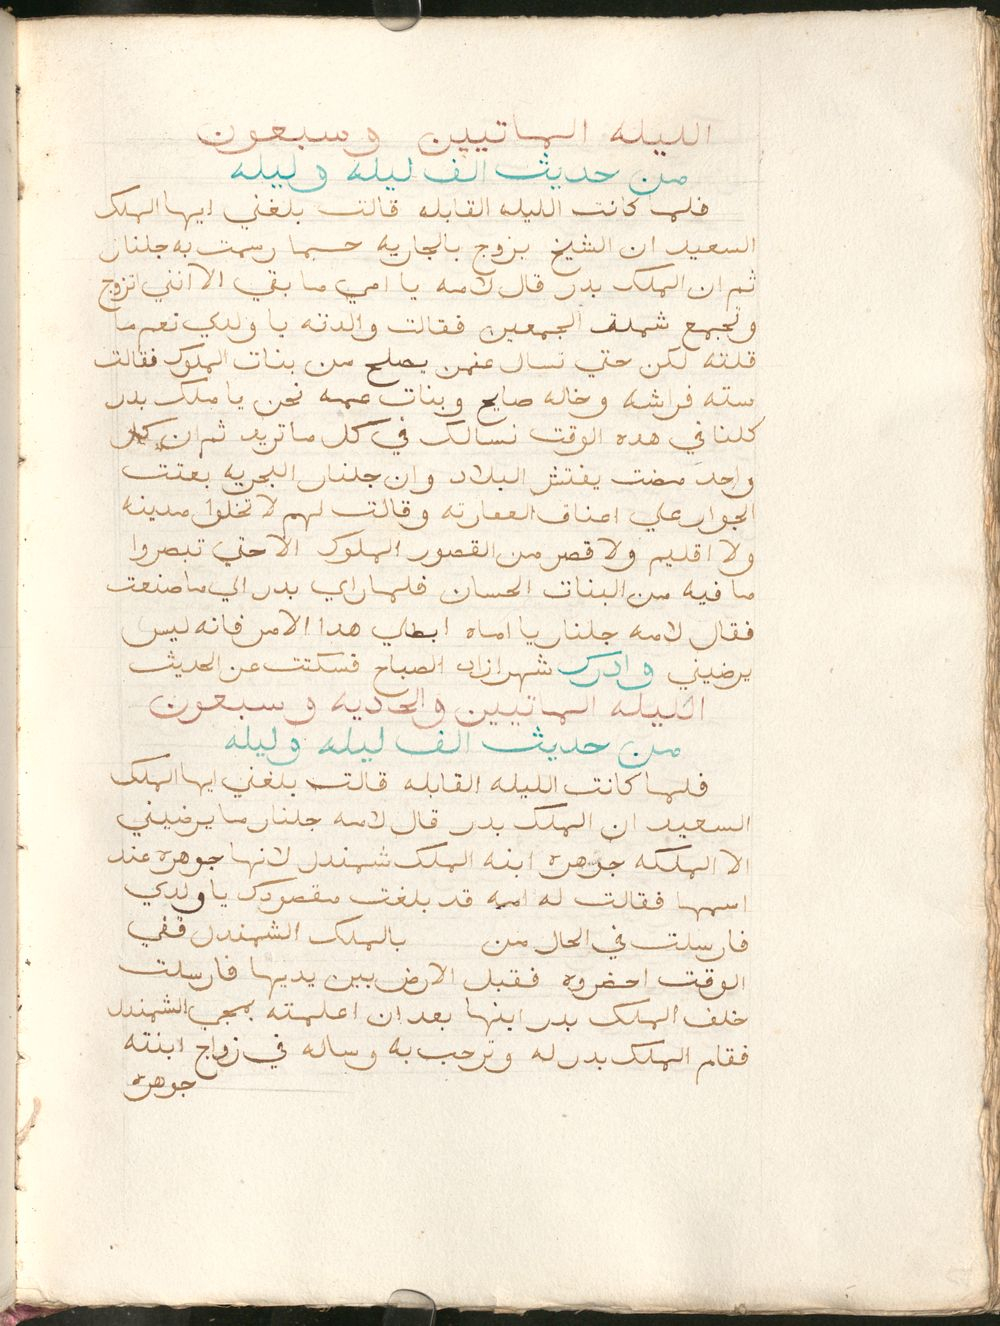 الليله الماتيين وسبعون
من حديث الف ليله وليله
فلما كانت الليله القابله قالت بلغني ايها الملك
السعيد ان الشيخ يزوج بالجاريه حسبما رسمت به جلنار
ثم ان الملك بدر قال لامه يا امي ما بقي الا انني اتزوج
وتجمع شملك الجمعين فقالت والدته يا ولدي نعم ما
قلته لكن حتي نسال عنمن يصلح من بنات الملوك فقالت
سته فراشه وخاله صايح وبنات عمه نحن يا ملك بدر
كلنا في هده الوقت نسالك في كل ما تريد ثم ان كل
واحد مضت يفتش البلاد وان جلنار البحريه بعتت
الجوار علي اعناق العفارته وقالت لهم لا تخلوا مدينه
ولا اقليم ولا قصر من القصور الملوك الا حتي تبصروا
ما فيه من البنات الحسان فلما راي بدر الي ما صنعت
فقال لامه جلنار يا اماه ابطلي هدا الامر فانه ليس
يرضيني وادرك شهرازاد الصباح فسكتت عن الحديث
الليله الماتيين والحاديه وسبعون
من حديث الف ليله وليله
فلما كانت الليله القابله قالت بلغني ايها الملك
السعيد ان الملك بدر قال لامه جلنار ما يرضيني
الا الملكه جوهره ابنه الملك شمندل لانها جوهره عند
اسمها فقالت له امه قد بلغت مقصودك يا ولدي
فارسلت في الحال من بالملك الشمندل ففي
الوقت احضروه فقبل الارض بين يديها فارسلت
خلف الملك بدر ابنها بعد ان اعلمته بمجي الشمندل
فقام الملك بدر له وترحب به وساله في زواج ابنته
جوهره